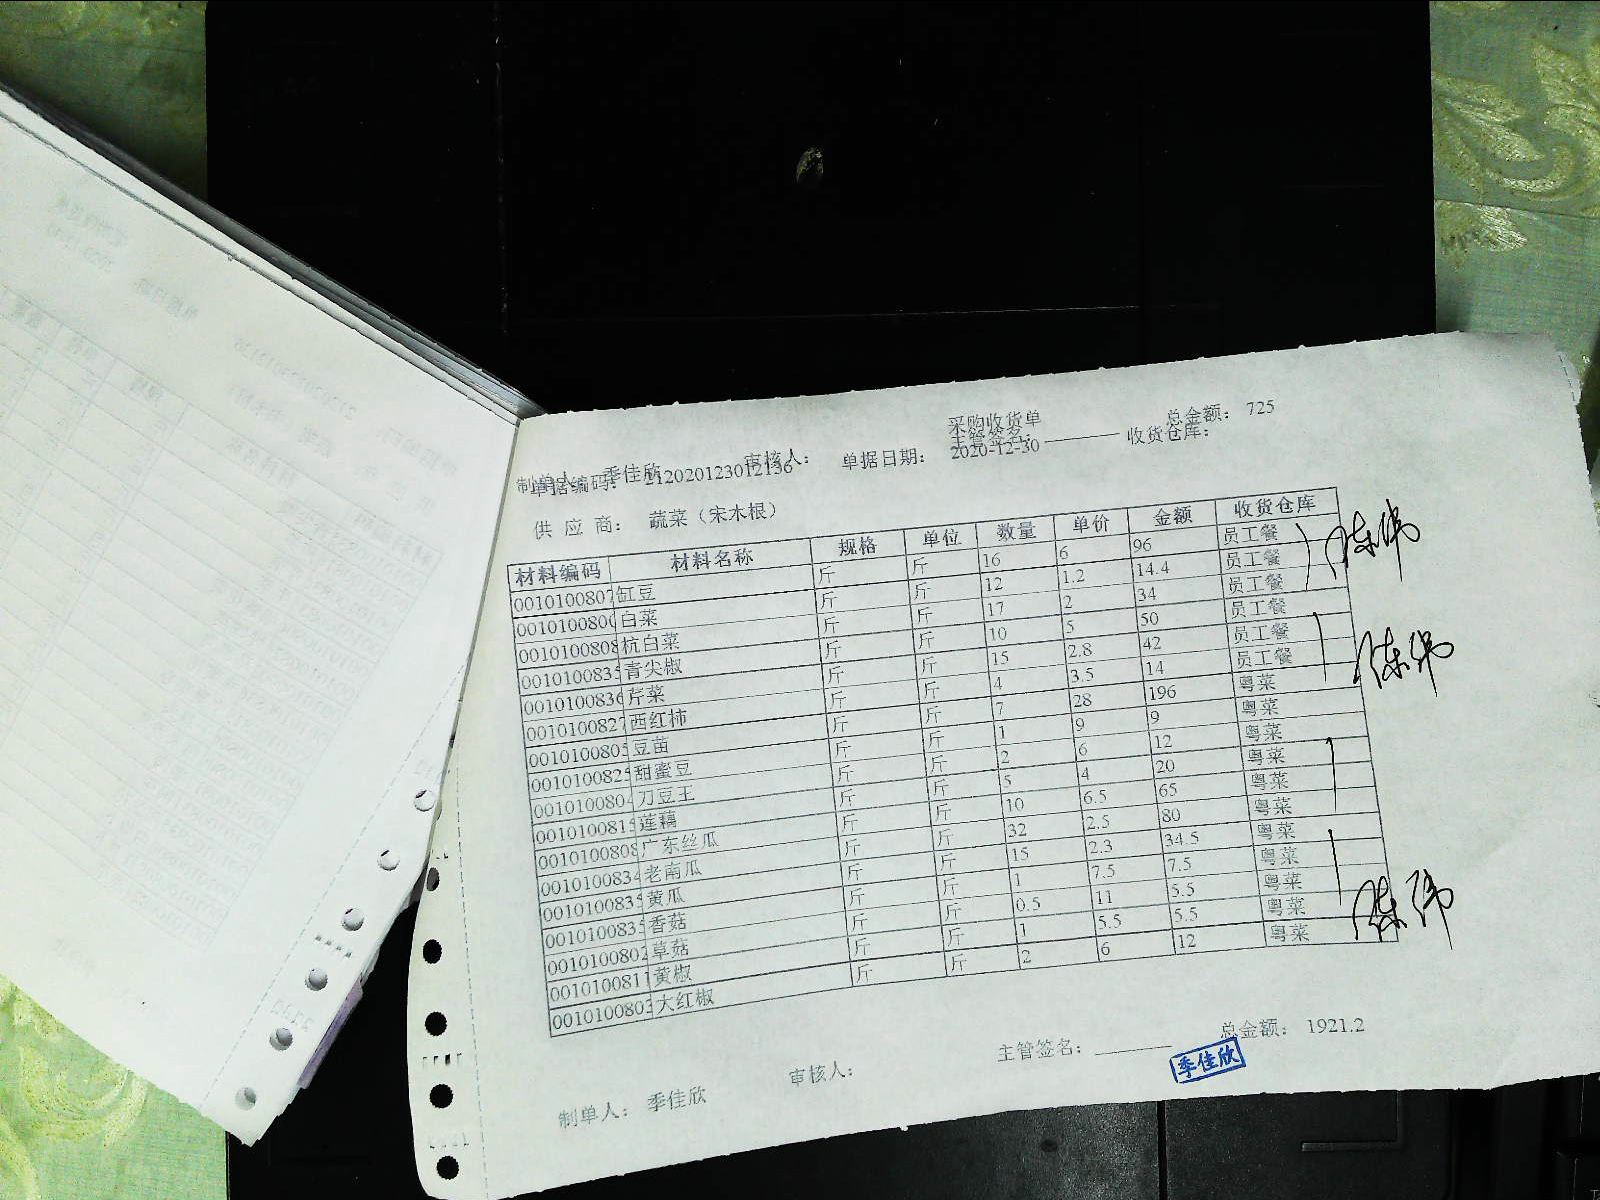 采购收货单 总金额: 725
制单人: 季佳欣 审核人: 主管签名: 收货仓库:
单据编码: 212020123012136 单据日期: 2020-12-30
供 应 商: 蔬菜（宋木根）
材料编码 材料名称 规格 单位 数量 单价 金额 收货仓库
0010100807 缸豆 斤 斤 16 6 96 员工餐
001010080 白菜 斤 斤 12 1.2 14.4 员工餐
0010100808 杭白菜 斤 斤 17 2 34 员工餐
001010083 青尖椒 斤 斤 10 5 50 员工餐
0010100836 芹菜 斤 斤 15 2.8 42 员工餐
0010100827 西红柿 斤 斤 4 3.5 14 员工餐
001010080 豆苗 斤 斤 7 28 196 粤菜
001010082 甜蜜豆 斤 斤 1 9 9 粤菜
0010100804 刀豆王 斤 斤 2 6 12 粤菜
001010081 莲藕 斤 斤 5 4 20 粤菜
0010100808 广东丝瓜 斤 斤 10 6.5 65 粤菜
0010100834 老南瓜 斤 斤 32 2.5 80 粤菜
001010083 黄瓜 斤 斤 15 2.3 34.5 粤菜
001010083 香菇 斤 斤 1 7.5 7.5 粤菜
0010100802 草菇 斤 斤 0.5 11 5.5 粤菜
001010081 黄椒 斤 斤 1 5.5 5.5 粤菜
001010080 大红椒 斤 斤 2 6 12 粤菜
陈伟
陈伟
陈伟
制单人: 季佳欣 审核人: 主管签名: 总金额: 1921.2
季佳欣